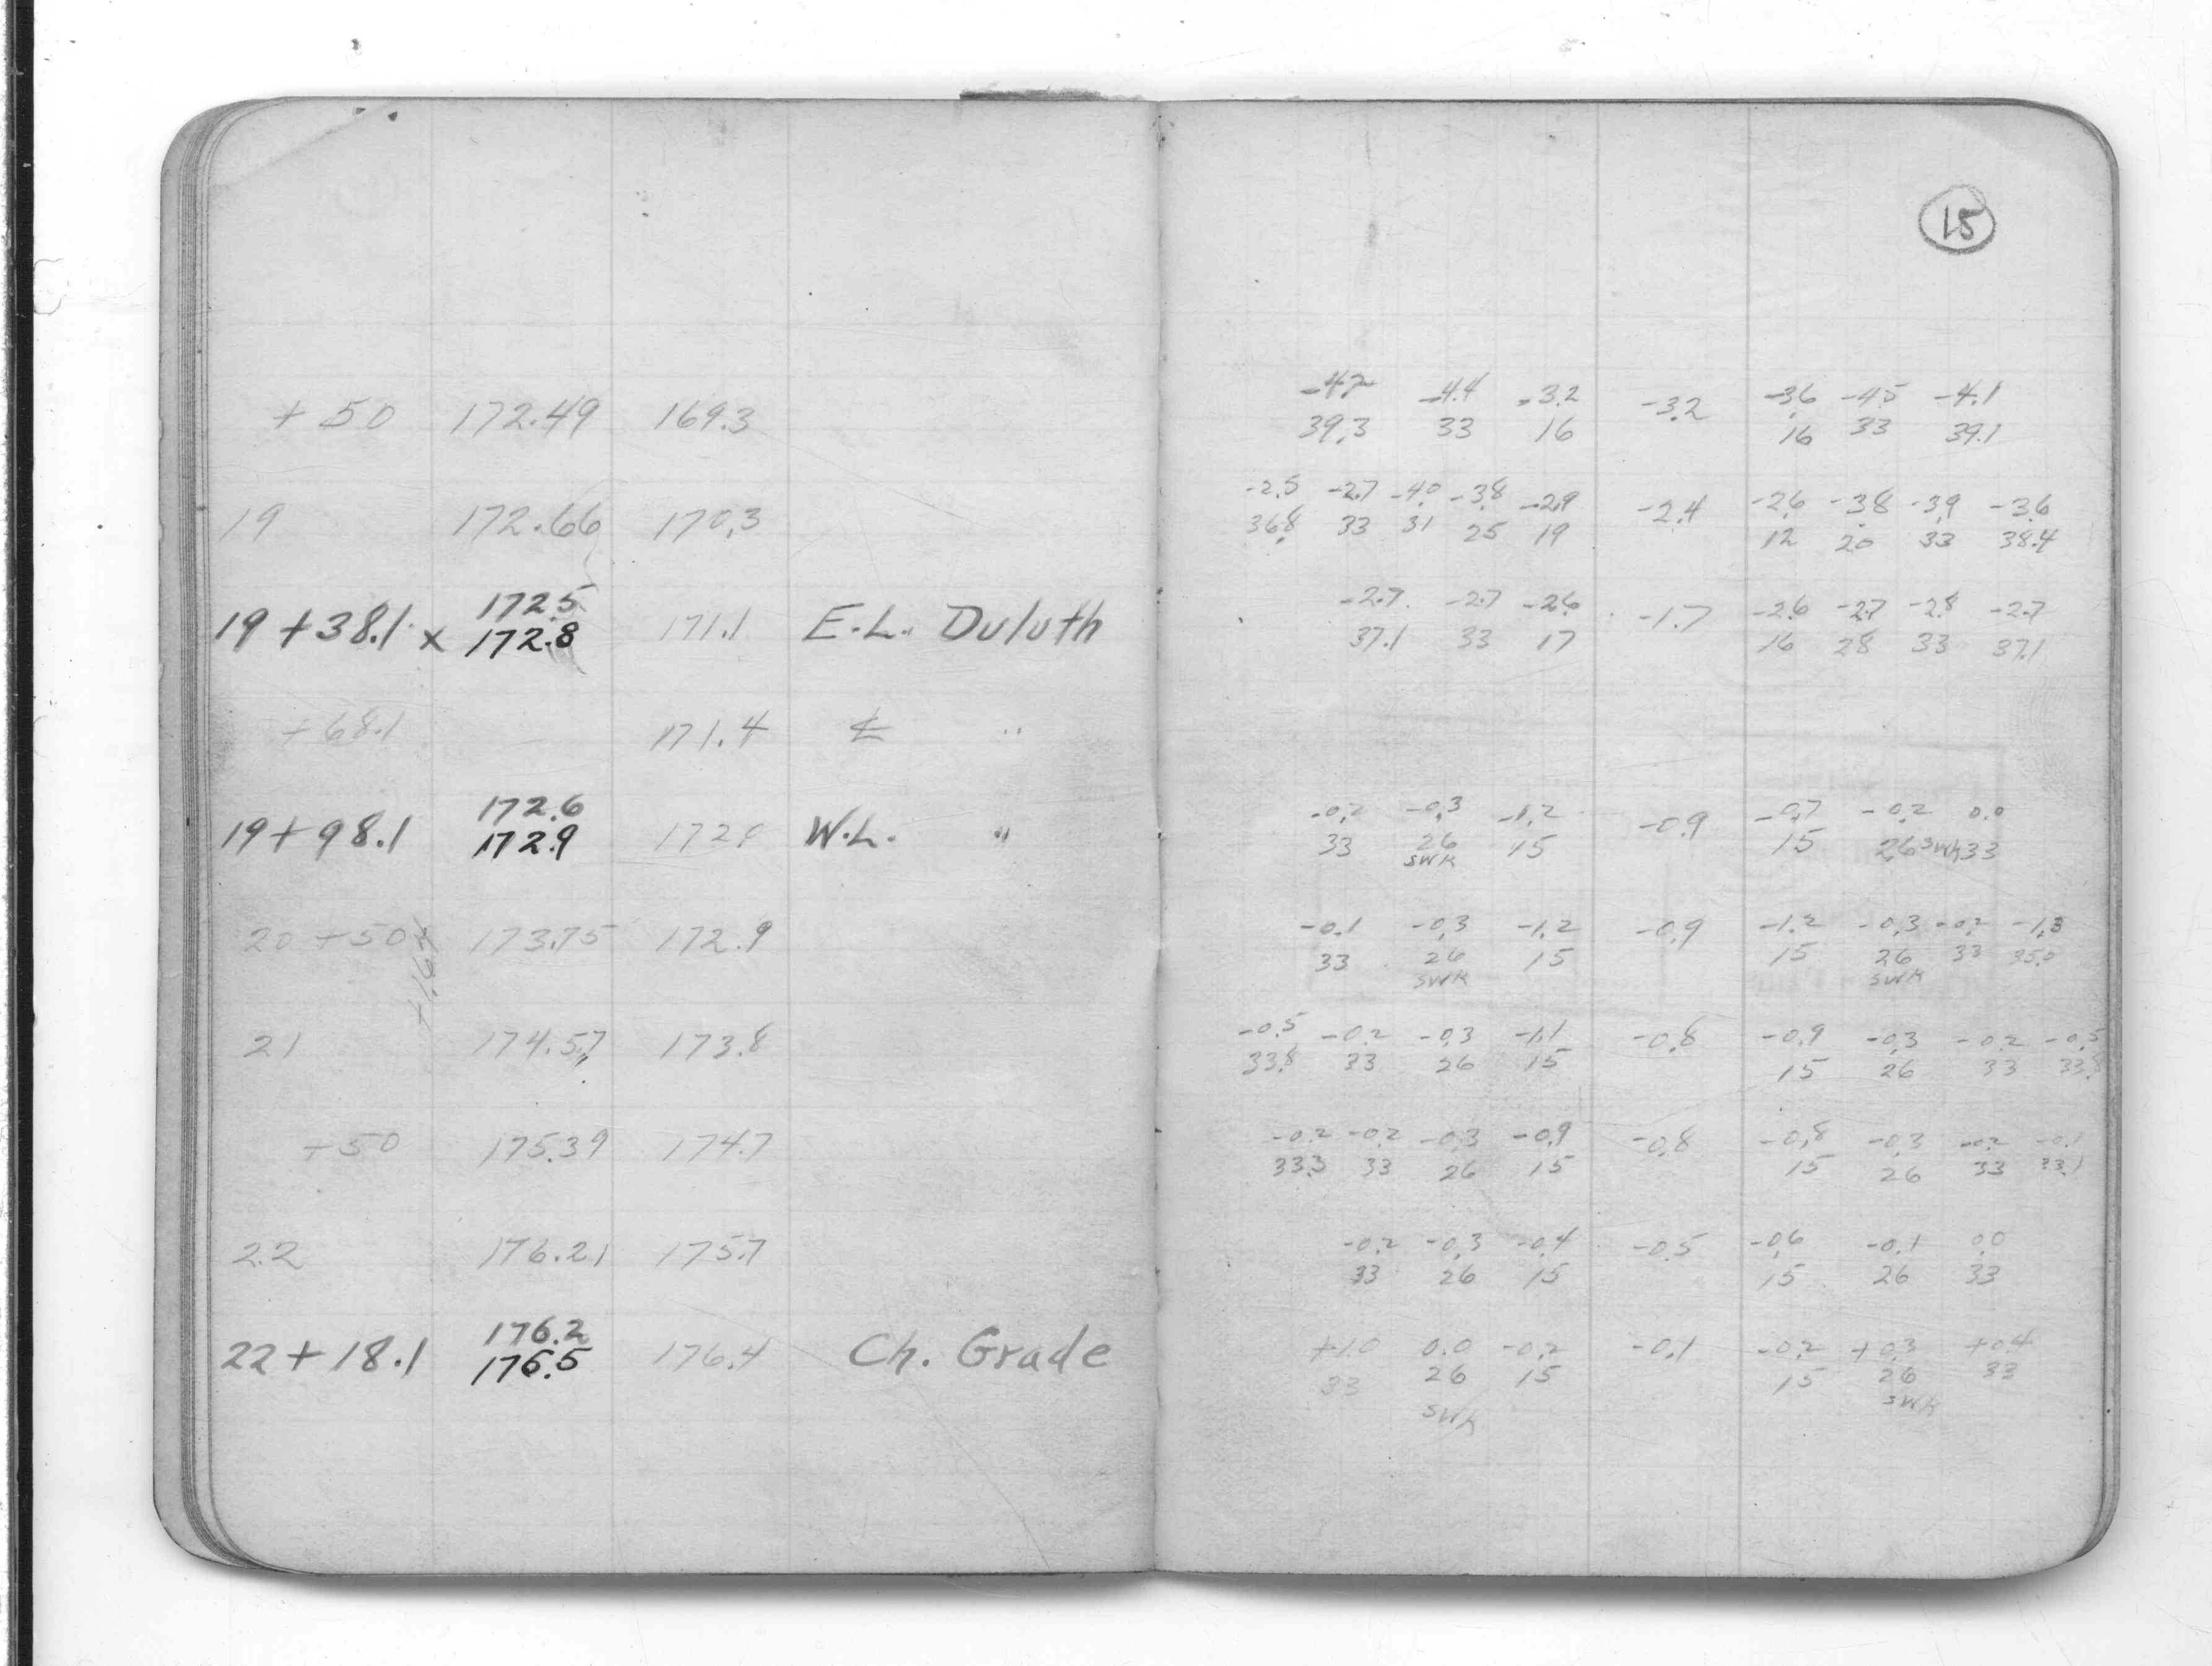 +50 172.49 169.3
19 172.66 170.3
172.5
19+38.1 x 172.8 171.1 E.L. Duluth
+68.1 171.4 ℄ "
172.6
19+98.1 172.9 172.0 W.L. "
20+50 173.75 172.9
+1.64
21 174.57 173.8
+50 175.39 174.7
22 176.21 175.7
176.2
22+18.1 176.5 176.4 Ch. Grade
15
-4.2 -4.4 -3.2 -3.2 -3.6 -4.5 -4.1
39.3 33 16 16 33 39.1
-2.5 -2.7 -4.0 -3.8 -2.9 -2.4 -2.6 -3.8 -3.9 -3.6
36.8 33 31 25 19 12 20 33 38.4
-2.7 -2.7 -2.6 -1.7 -2.6 -2.7 -2.8 -2.7
37.1 33 17 16 28 33 37.1
-0.2 -0.3 -1.2 -0.9 -0.7 -0.2 0.0
33 26 15 15 26 SWK 33
SWK
-0.1 -0.3 -1.2 -0.9 -1.2 -0.3 -0.2 -1.3
33 26 15 15 26 33 35.0
SWK SWK
-0.5 -0.2 -0.3 -1.1 -0.8 -0.9 -0.3 -0.2 -0.5
33.8 33 26 15 15 26 33 33.8
-0.2 -0.2 -0.3 -0.9 -0.8 -0.8 -0.3 -0.2 -0.1
33.3 33 26 15 15 26 33 33.1
-0.2 -0.3 -0.4 -0.5 -0.6 -0.1 0.0
33 26 15 15 26 33
+1.0 0.0 -0.2 -0.1 -0.2 +0.3 +0.4
33 26 15 15 26 33
SWK SWK